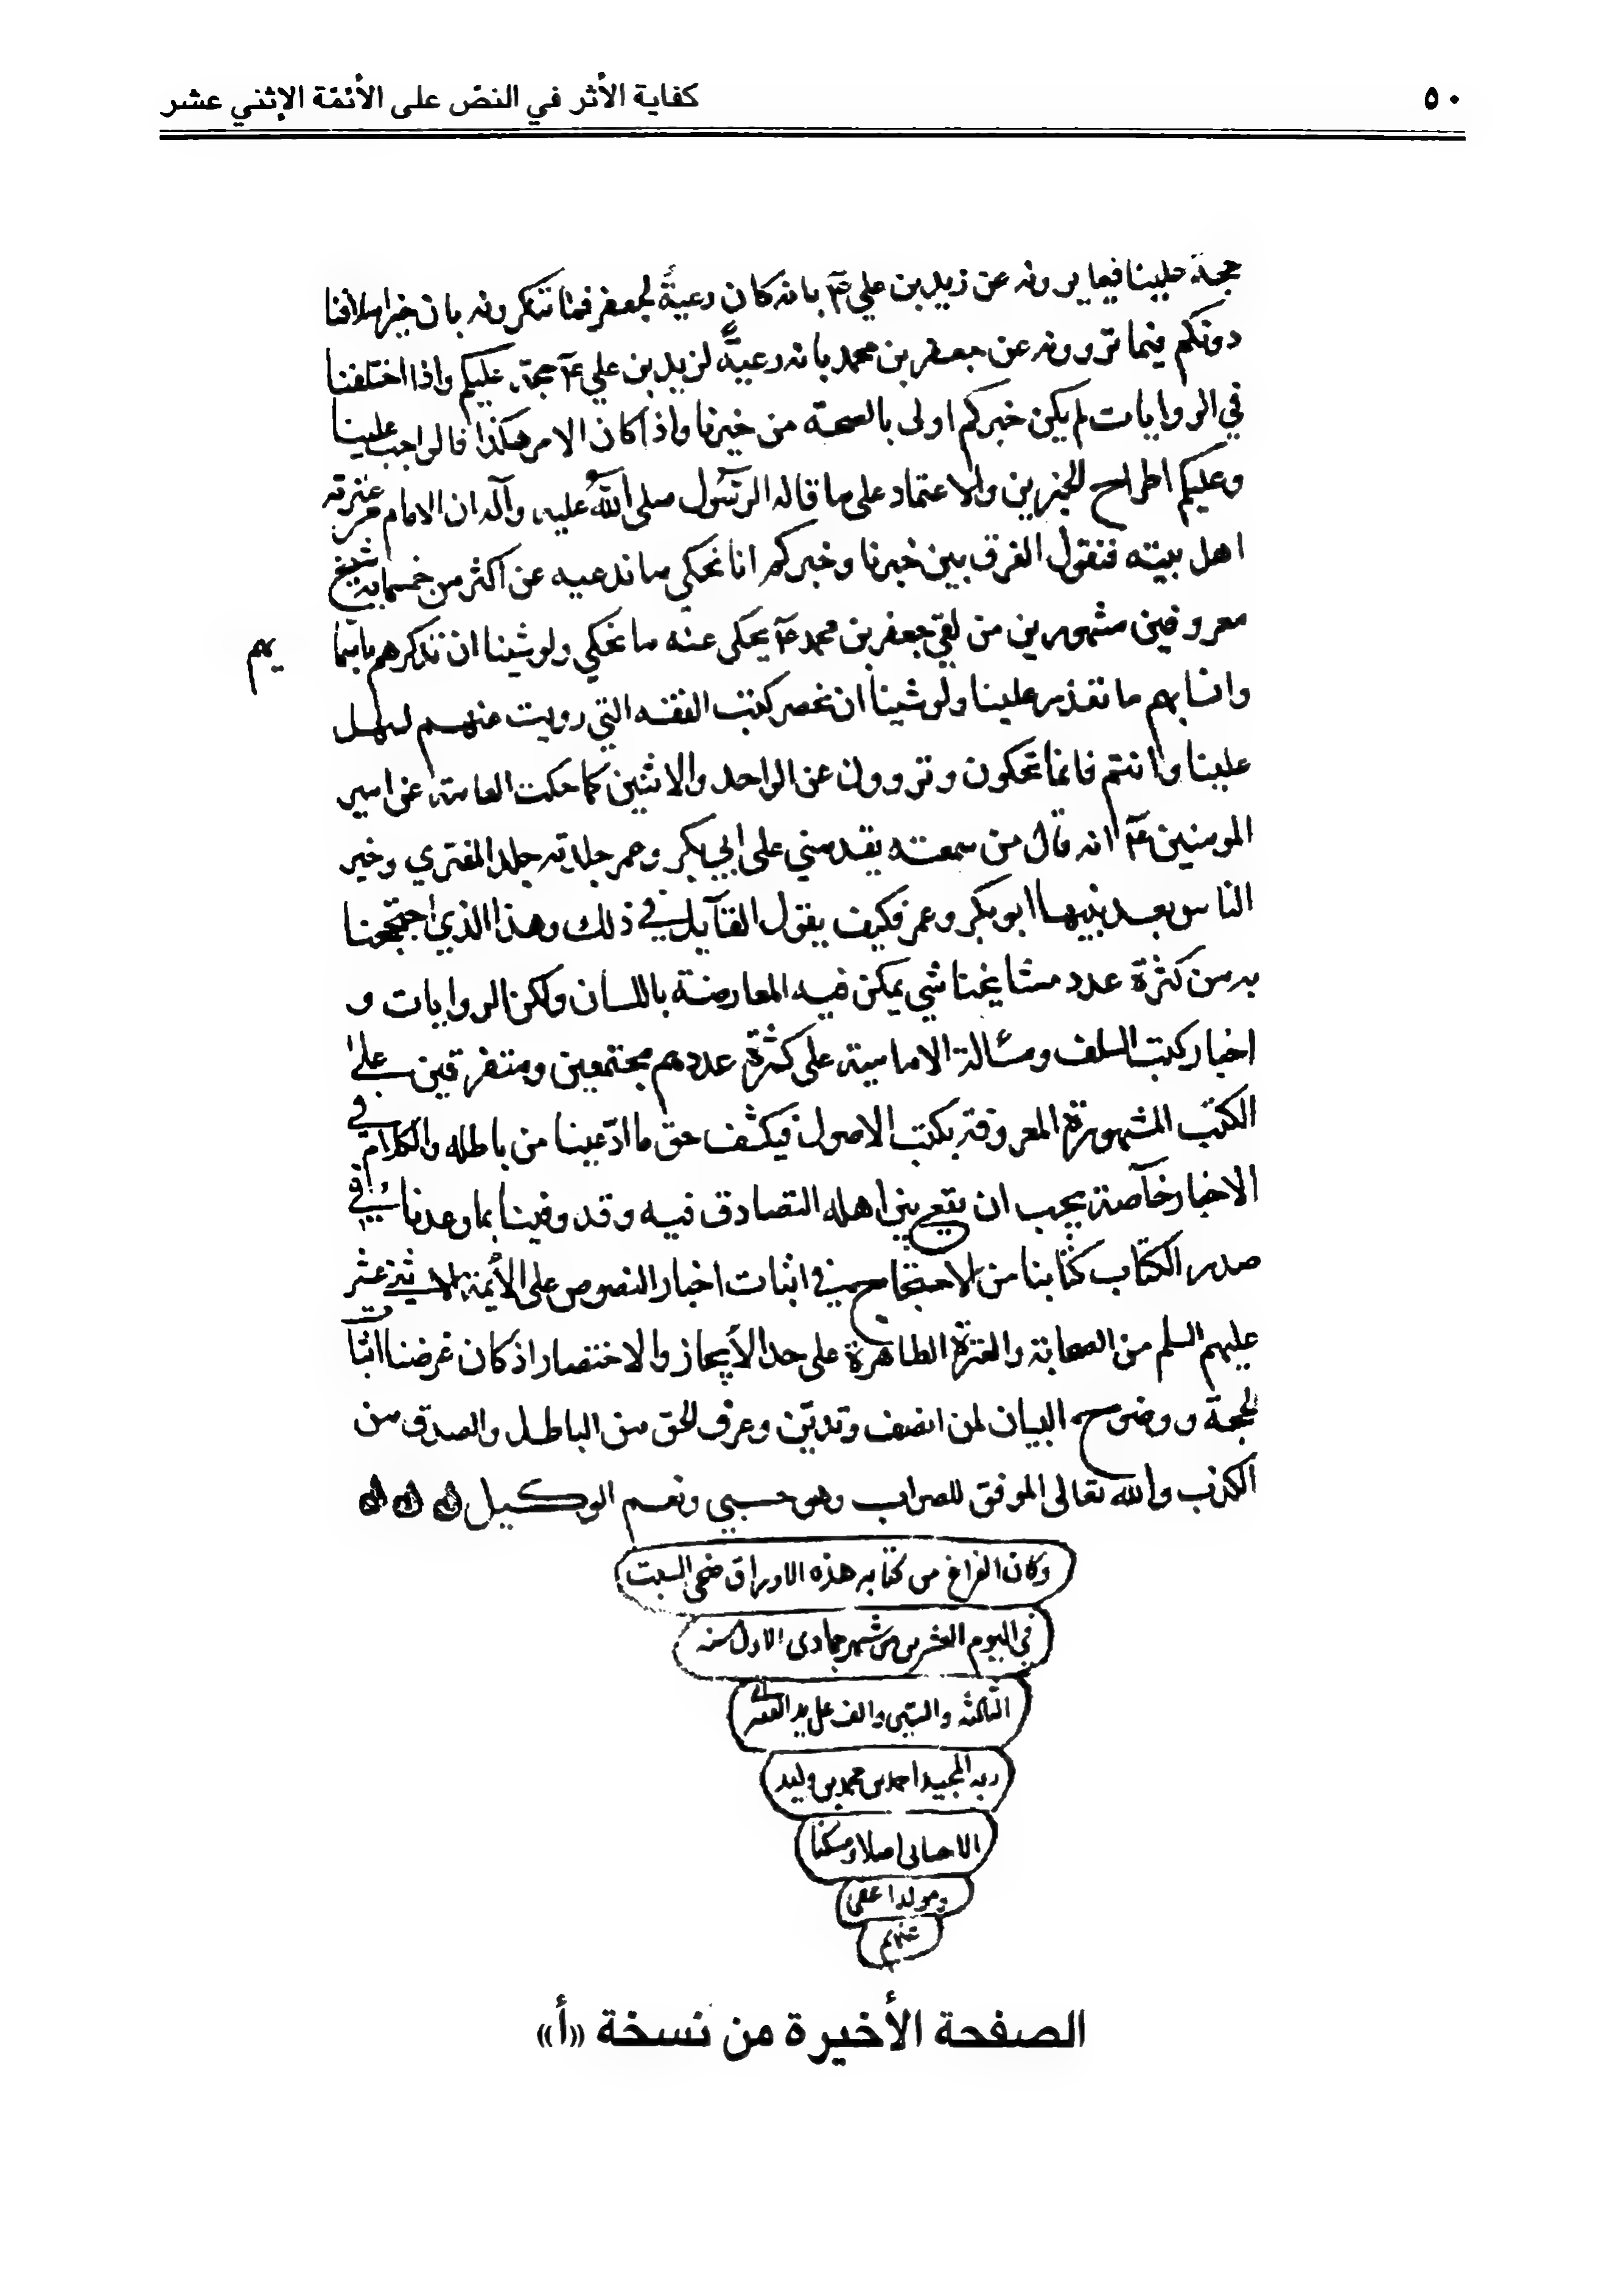 ٥٠
كفاية الأثر في النصّ على الأئمّة الإثني عشر
حجة علينا فيما يرونه عن زيد بن علي ع بانه كان رعيةً لجعفر فما تنكرونه بان خبر اسلافنا
دونكم فيما تروونه عن جعفر بن محمد بانه رعيةً لزيد بن علي ع حجة عليكم واذا اختلفنا
في الروايات لم يكن خبركم اولى بالصحة من خبرنا واذا كان الامر هكذا فالواجب علينا
وعليكم اطراح الخبرين والاعتماد على ما قاله الرسول صلى الله عليه وآله ان الامام من عترته
اهل بيته فنقول الفرق بين خبرنا وخبركم انا نحكي ما ندعيه عن اكثر من خمسمايه شيخ
معروفين مشهورين من لقي جعفر بن محمد ع يحكى عنه ما نحكي ولو شينا ان نذكرهم باسما
يهم
وانسابهم ما تعذر علينا ولو شينا ان نحصر كتب الفقه التي رويت عنهم لسهل
علينا وانتم فانما تحكون وتروون عن الواحد والاثنين كما حكت العامة عن امير
المومنين ع انه قال من سمعته يقدمني على ابي بكر وعمر جلدته جلد المفتري وخير
الناس بعد نبيها ابو بكر وعمر فكيف يقول القآيل في ذلك وهذا الذي احتججنا
به من كثرة عدد مشايخنا شي يمكن فيه المعارضة باللسان ولكن الروايات و
اخبار كتب السلف ومسالة الامامية على كثرة عددهم مجتمعين ومتفرقين على
الكتب المشهورة المعروفة بكتب الاصول فيكشف حق ما ادّعينا من باطله والكلام في
الاخبار خآصة يجب ان يقع بين اهله التصادق فيه وقد وفينا بما وعدنا في
صدر الكتاب كتابنا من الاحتجاج في اثبات اخبار النصوص على الأيمة الاثني عشر
عليهم السلم من الصحابة والعترة الطاهرة على حد الأيجاز والاختصار اذ كان غرضنا اثبا
الحجة ووضوح البيان لمن انصف وتديّن وعرف الحق من الباطل والصدق من
الكذب والله تعالى الموفق للصواب وهو حسبي ونعم الوكيل
وكان الفراغ من كتابه هذه الاوراق ضحى السبت
في اليوم العشرين من شهر جمادى الاول سنه
الثالثه والستين والف على يد الفقير الى
ربه المجيد احمد بن محمد بن وليد
الاحسائي اصلا ومسكنا
ومولدا عفى
عنهم
الصفحة الأخيرة من نسخة «أ»